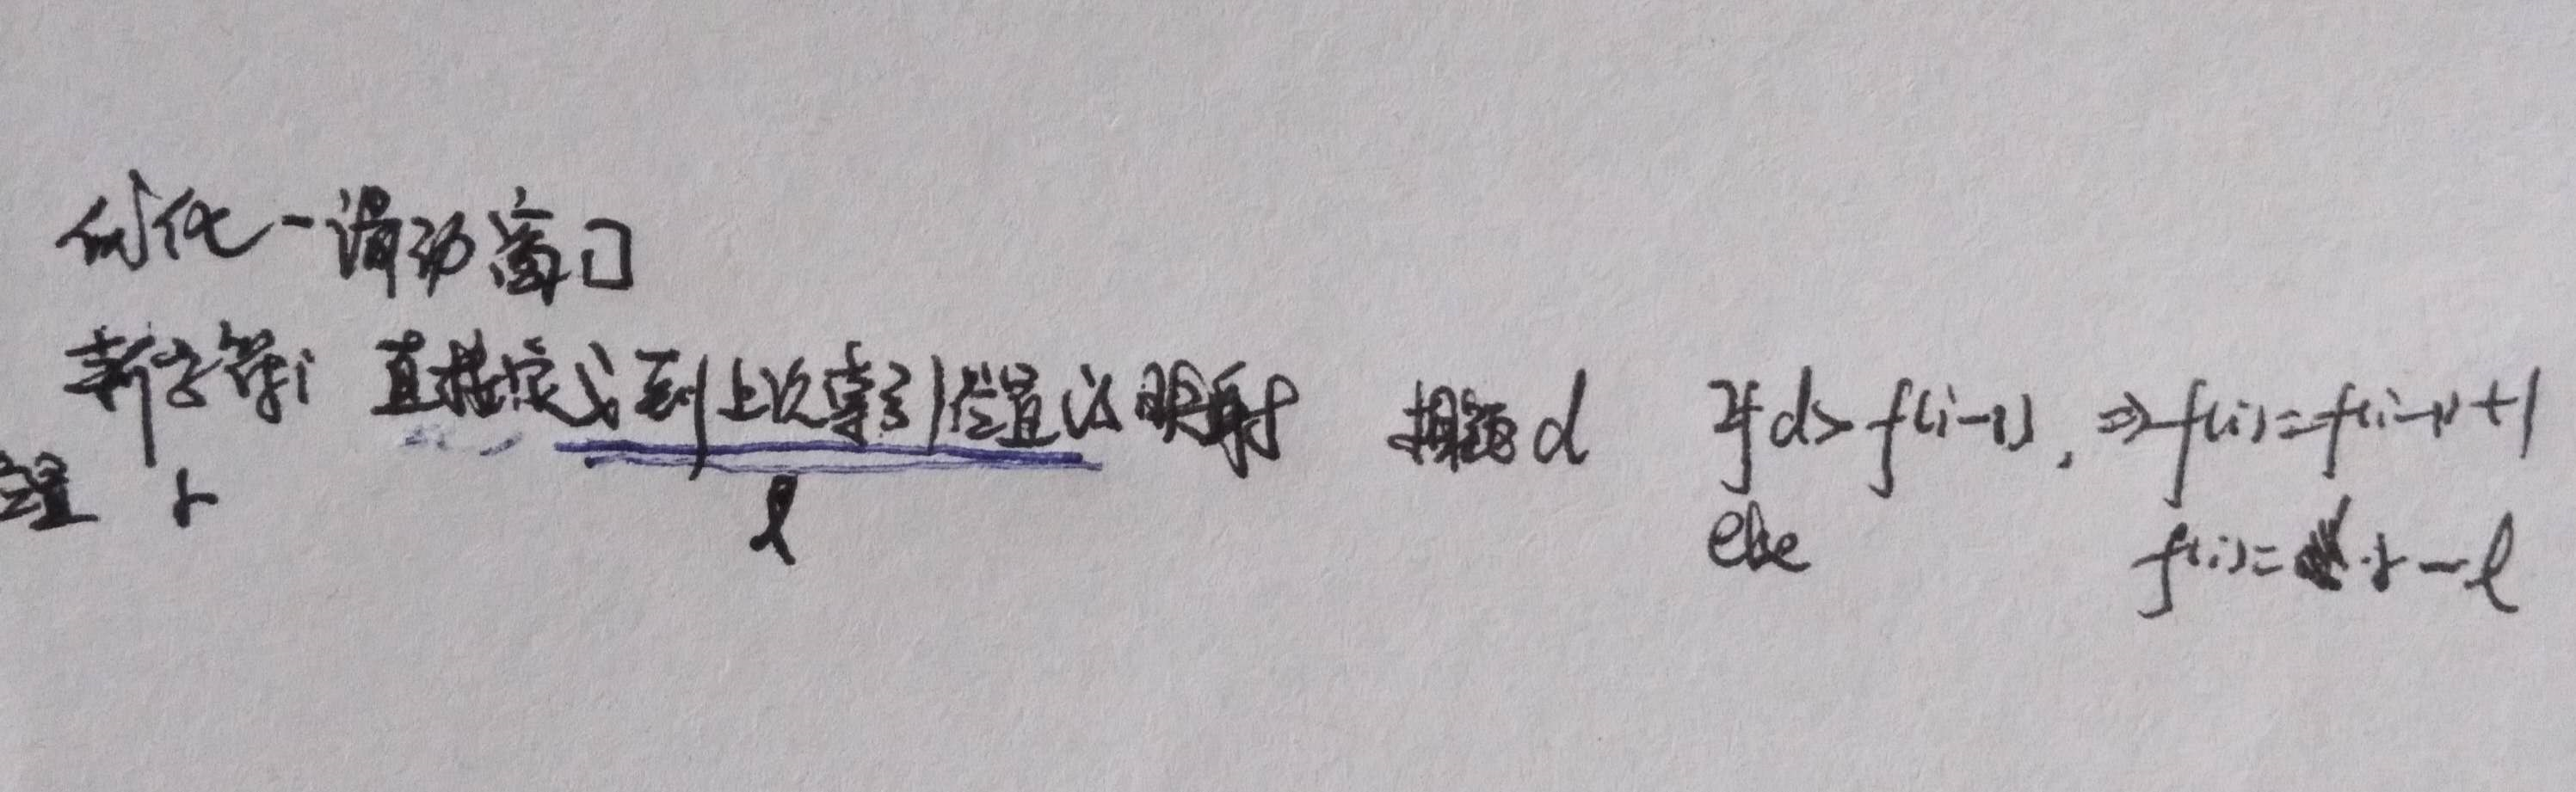 优化-滑动窗口
新字符i 直接定义到上次索引位置的映射 相距d If d> f(i-1), ⇒ f(i)=f(i-1)+1
位置 r l else f(i)= r-l